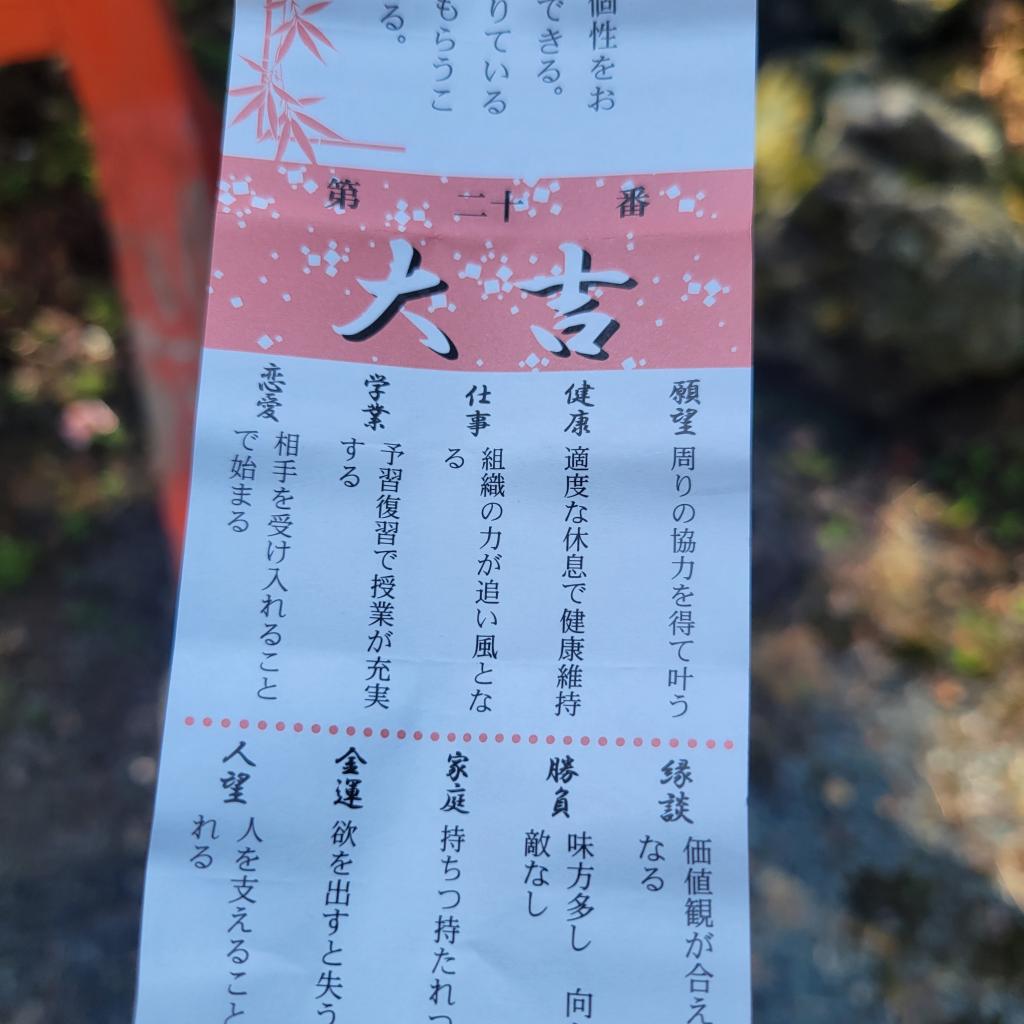 個性をお
できる。
りている
もらうこ
る。
第 二十 番
大吉
願望 周りの協力を得て叶う
健康 適度な休息で健康維持
仕事 組織の力が追い風とな
る
学業 予習復習で授業が充実
する
恋愛 相手を受け入れること
で始まる
縁談 価値観が合え
なる
勝負 味方多し 向
敵なし
家庭 持ちつ持たれつ
金運 欲を出すと失う
人望 人を支えること
れる